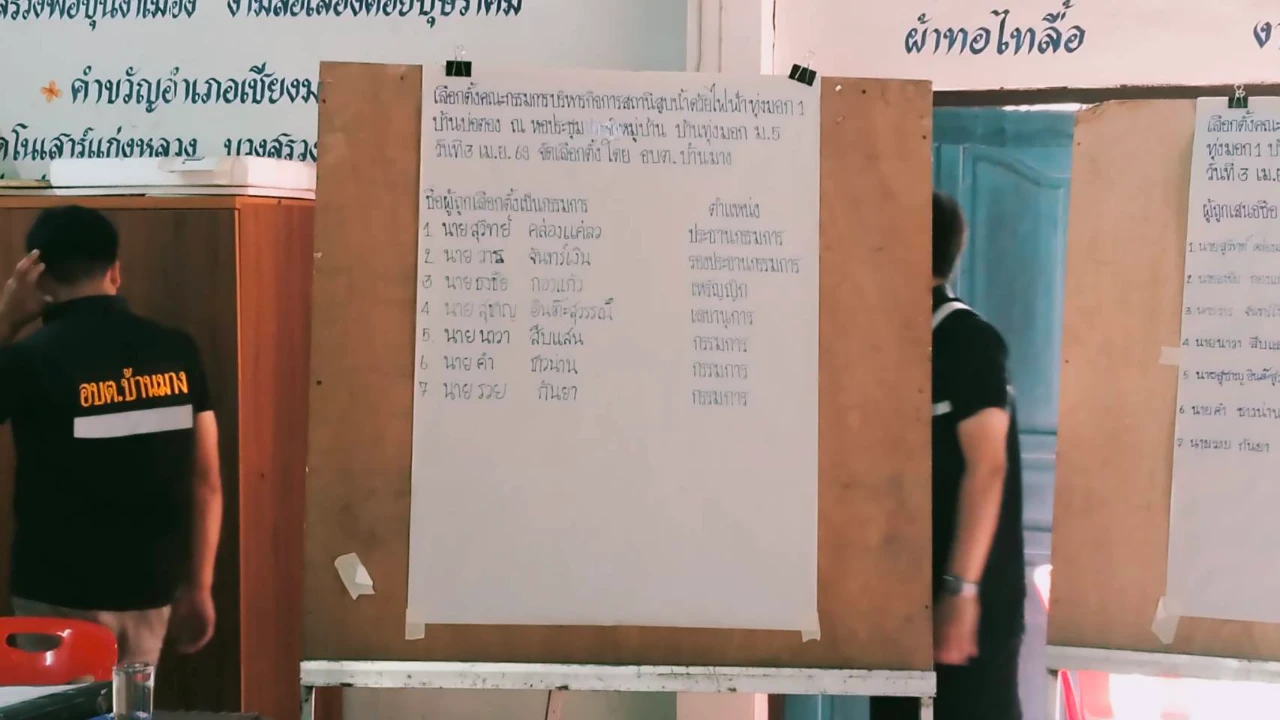 งามลือเลื่องดอยบุษราคัม
คำขวัญอำเภอเชียงม
โนเสาร์แก่งหลวง บวงสรวง
ผ้าทอไทลื้อ
อบต.บ้านมาง
เลือกตั้งคณะกรรมการบริหารกิจการสถานีสูบน้ำด้วยไฟฟ้า ทุ่งมอก 1
บ้านบ่อตอง ณ หอประชุม หมู่บ้าน บ้านทุ่งมอก ม.5
วันที่ 3 เม.ย. 63 จัดเลือกตั้งโดย อบต. บ้านมาง
ชื่อผู้ถูกเลือกตั้งเป็นกรรมการ ตำแหน่ง
1. นายสุวิทย์ คล่องแคล่ว ประธานกรรมการ
2. นาย วาธ จันทร์เงิน รองประธานกรรมการ
3 นาย ธวชัย กองแก้ว เหรัญญิก
4 นาย สุชาญ อินต๊ะสุวรรณ์ เลขานุการ
5. นายนาวา สืบแสน กรรมการ
6 นาย คำ ชาวน่าน กรรมการ
7 นาย รวย กันยา กรรมการ
เลือกตั้งคณะ
ทุ่งมอก 1
วันที่ 3 เม.
ผู้ถูกเสนอชื่อ
1. นายสุวิทย์
4 นายนาวา สืบแส
6. นายคำ ชาวน่าน
7. นายรวย กันยา